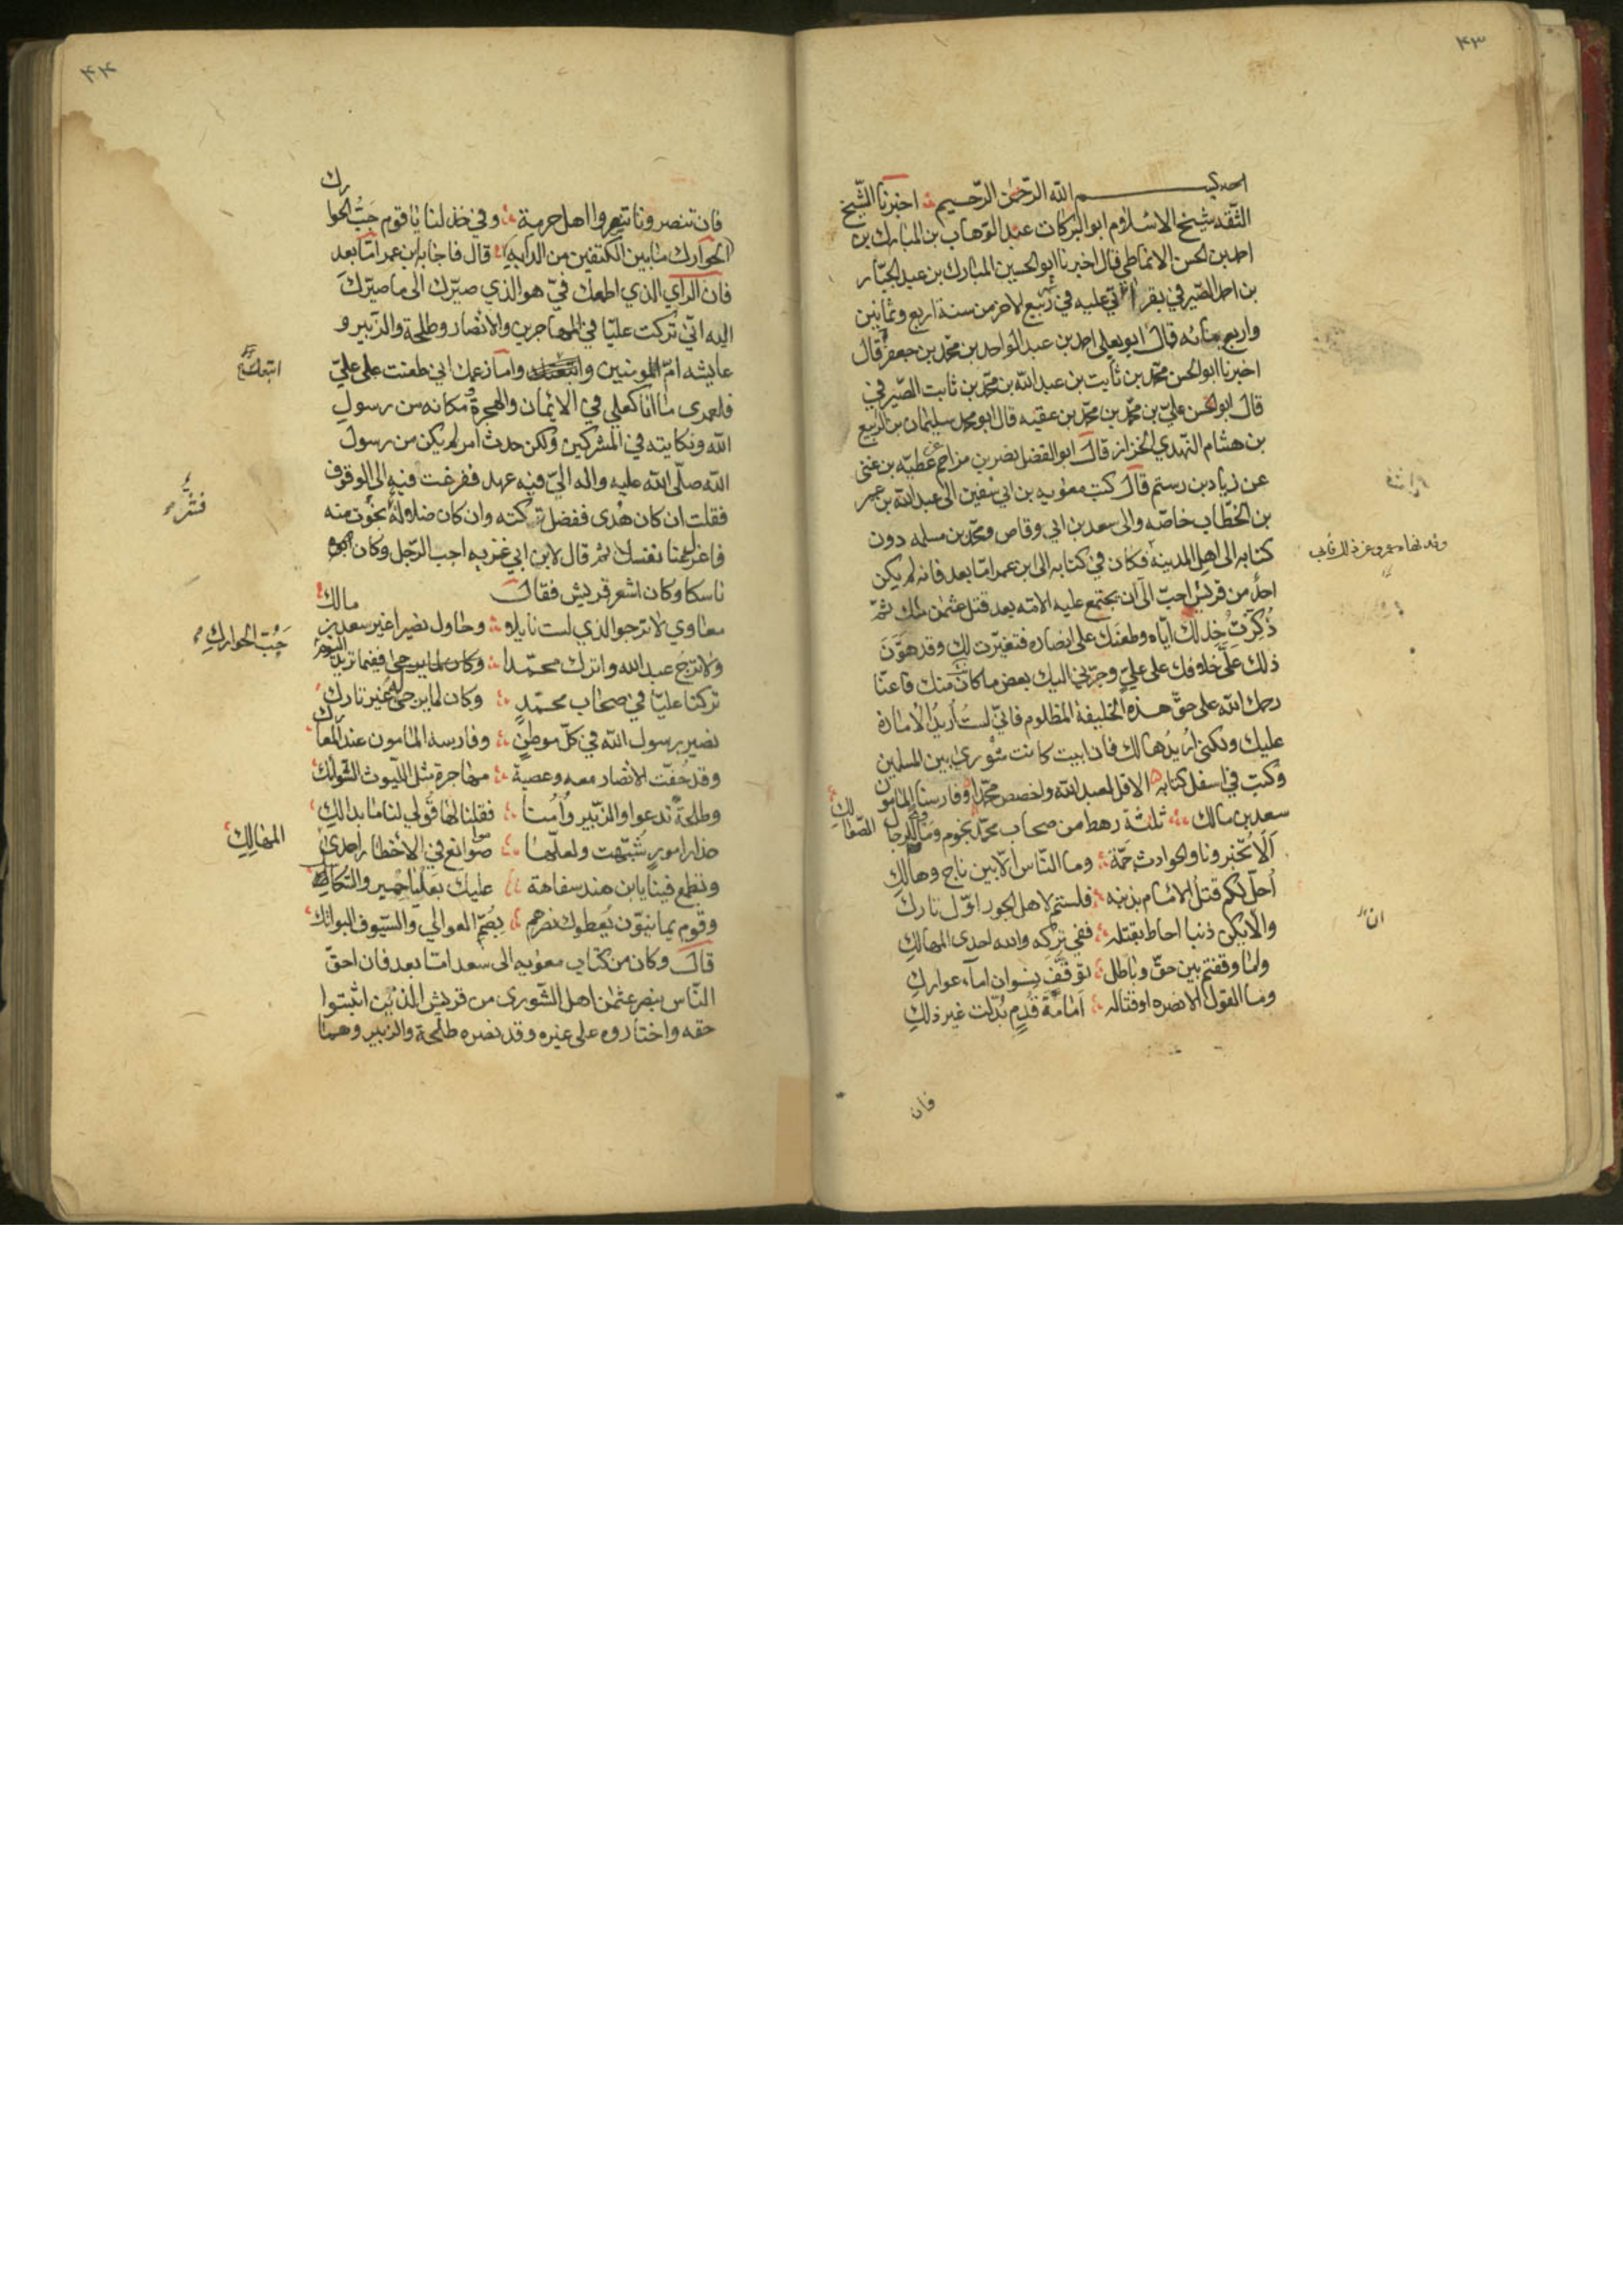 ٤٣
بسم الله الرّحمٰن الرّحيم اخبرنا الشّيخ
الثّقه شيخ الاسلام ابو البركات عبد الوهاب بن المبارك بن
احمد بن الحسن الانماطي قال اخبرنا ابو الحسين المبارك بن عبد الجبّار
بن احمد الصّيرفي بقراءتي عليه في ربيع الاخر من سنة اربع وثمانين
واربع مائه قال ابو يعلى احمد بن عبد الواحد بن محمّد بن جعفر قال
اخبرنا ابو الحسن محمّد بن ثابت بن عبد الله بن محمّد بن ثابت الصّيرفي
قال ابو الحسن عليّ بن محمّد بن محمّد بن عقبه قال ابو محمد سليمان بن الربيع
بن هشام النّهدي الخزاز قال ابو الفضل نصر بن مزاحم عن عطيّه بن غنى
عن زياد بن رستم قال كتب معوٰيه بن ابي سفين الى عبد الله بن عمر
بن الخطّاب خاصّه والى سعد بن ابي وقاص ومحمّد بن مسلمه دون
كتابه الى اهل المدينه فكان في كتابه الى ابن عمر امّا بعد فانه لم يكن
احدٌ من قريش احبّ الىّ ان يجتمع عليه الامّه بعد قتل عثمٰن منك ثمّ
ذُكِرَتْ خذلك ايّاه وطعنَك على انصاره فتغيّرت لك وقد هوَّنَ
ذلك علىَّ خلافك على عليٍّ وجرّني اليك بعض ما كان منك فاعنّا
رحمك الله على حقّ هذه الخليفة المظلوم فانّي لستُ أريدُ الامارة
عليك ولكنى اُريدُها لك فان ابيت كانت شورى بين المسلمين
وكتب في اسفل كتابه الا قل لعبد الله واخصص محمّدا وفارسنا المامون
سعد بن مالك ثلثة رهط من صحاب محمّد نجوم وماوى للرجال الصّعالك
اَلا تخبرونا والحوادث جَمّة وما النّاس الّا بين ناج وهالك
أحلّ لكم قتلُ الامام بذنبه فلستم لاهل الجور اوّل تارك
والّا يكن ذنبا احاط بقتله ففي تركه والله احدى المهالك
وامّا وقفتم بين حقّ وباطل توقّف نسوان اماء عوارك
وما القول الا نصره او قتاله اَمانَة قَومٍ بُدّلت غير ذلك
فان
ان
٤٤
فان تنصرونا تنصروا اهل حرمة وفي خذلنا يا قوم جَبُّ الحوارك
الحوارك ما بين الكتفين من الدابه قال فاجابه ابن عمر امّا بعد
فان الرّاي الذي اطمعك فيّ هو الذي صيّرك الى ما صيّرك
اليه انّي تركت عليّا في المهاجرين والانصار وطلحة والزّبير و
عايشه امّ المومنين واتبعك وامّا زعمك اني طعنت على عليّ
فلعمرى ما انا كعلي في الايمان والهجرة ومكانه من رسول
الله ونكايته في المشركين ولكن حدث امر لم يكن من رسول
الله صلّى الله عليه واله اليّ فيه عهد ففزعت فيه الى الوقوف
فقلت ان كان هُدى ففضل تركته وان كان ضلالة نجوت منه
فاغن عنا نفسك ثم قال لابن ابي غزيه اجب الرّجل وكان ابوه
ناسكا وكان اشعر قريش فقال
معاوي لا ترجو الذي لست نايله وحاول نصيرا غير سعد بن مالك
ولا ترجُ عبد الله واترك محمّدا
تركنا عليّا في صحاب محمّدٍ وكان لما يرجى له غير تارك
نصير رسول الله في كلّ موطنٍ وفارسه المامون عند المعارك
وقد خفّت الانصار معه وعصبةٌ مهاجرة مثل اللّيوث الشّوابك
وطلحةُ يدعو والزّبير وأمنا فقلنا لها قُولي لنا ما بدا لك
حذار امورٍ شُبّهت ولعلّها موانع في الأخطار احدى
وتطمع فينا يا ابن هند سفاهةً عليك بعَليَا حمير والسّكاسك
وقوم يمانيّون يُعطوك نصرهم بِصُمّ العوالي والسّيوف البواتك
قال وكان من كتاب معوٰيه الى سعد امّا بعد فان احقّ
النّاس بنصر عثمٰن اهل الشّورى من قريش الّذين اثبتوا
حقه واختاروه على غيره وقد نصره طلحة والزبير وهما
جَبُّ الحوارك
المهالك